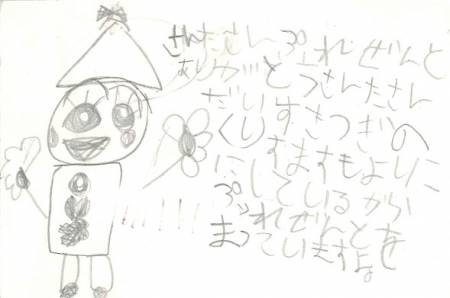 さんたさん ぷれぜんと
ありがとうさんたさん
だいすきつぎの
くりすますも
にしているから
ぷれぜんとを
まっていますよ。